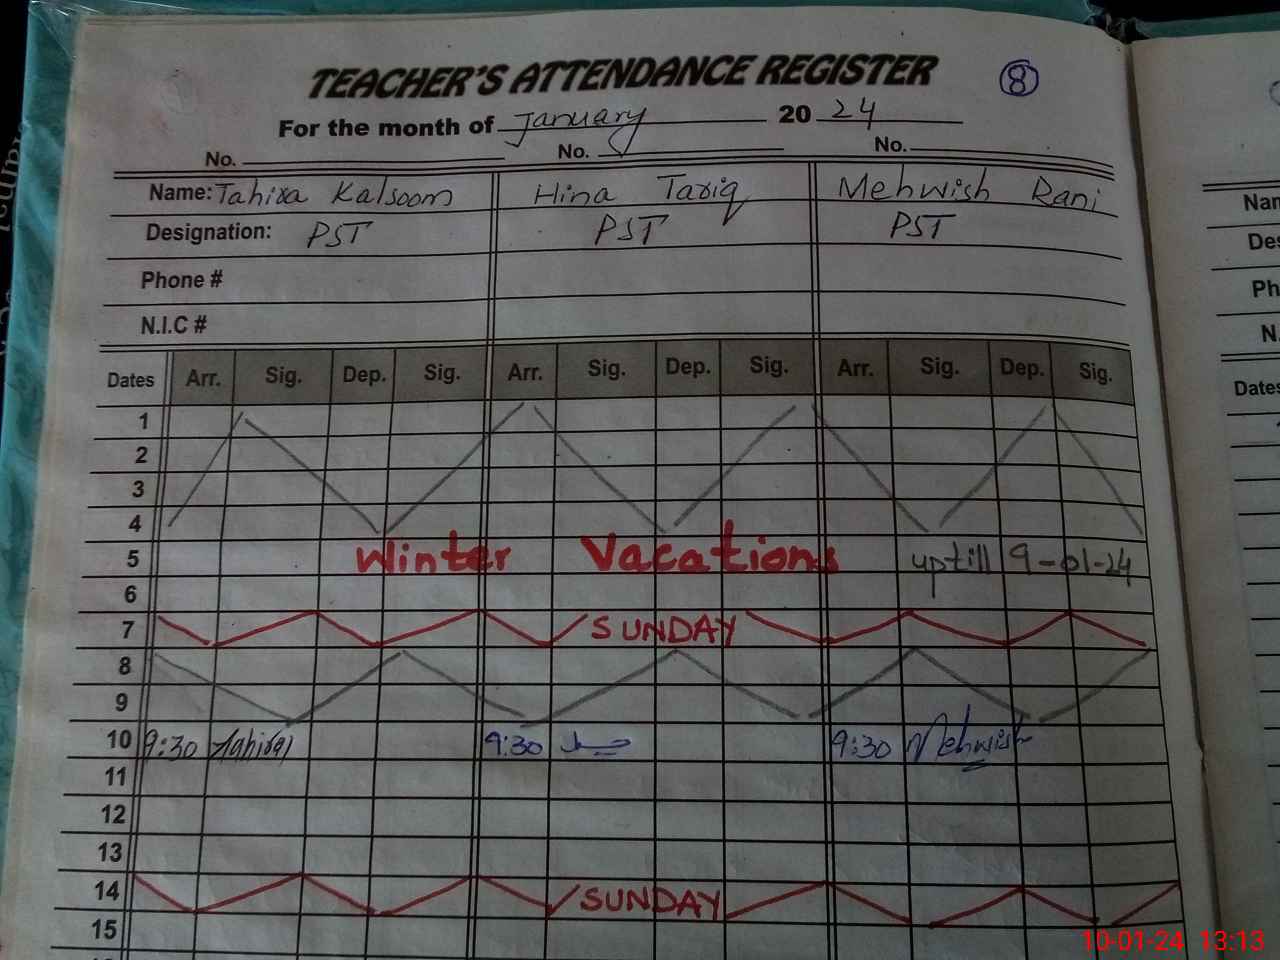 TEACHER'S ATTENDANCE REGISTER 8
For the month of January 20 24
No. No. No.
Name: Tahira Kalsoom Hina Tariq Mehwish Rani
Designation: PST PST PST
Phone #
N.I.C #
Dates Arr. Sig. Dep. Sig. Arr. Sig. Dep. Sig. Arr. Sig. Dep. Sig.
1
2
3
4
5 Winter Vacations uptill 9-01-24
6
7 SUNDAY
8
9
10 9:30 Tahira 9:30 9:30 Mehwish
11
12
13
14 SUNDAY
15
Nam
Des
Ph
N.
Dates
10-01-24 13:13